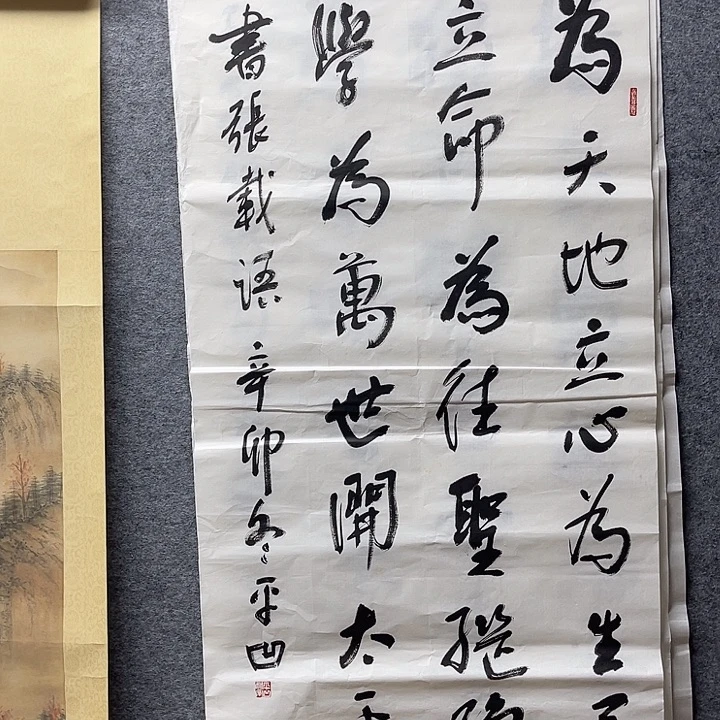 為天地立心為生
立命為往聖繼
學為萬世開太
書張載語辛卯冬平凹